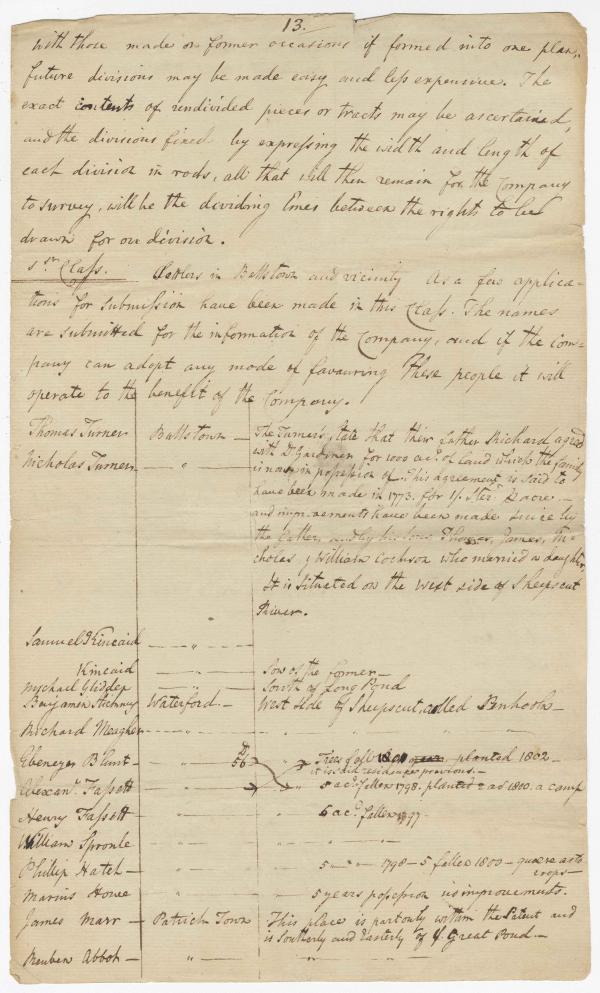 13.
with those made on former occasions if formed into one plan,
future divisions may be made easy and less expensive. The
exact contents of undivided pieces or tracts may be ascertained,
and the divisions fixed by expressing the width and length of
each division in rods, all that will then remain for the Company
to survey, will be the dividing lines between the rights to be
drawn for on division.
Class. Settlers in Ballstown and vicinity As a few applica-
tions for submission have been made in this Class. The names
are submitted for the information of the Company, and if the com-
pany can adopt any mode of favouring these people it will
operate to the benefit of the Company.
Thomas Turner Ballstown — The Turner's state that their father Richard agreed
Nicholas Turner — " — with Dr Gardiner for 1000 acs. of land which the family
is now in possession of. This agreement is said to
have been made in 1773. for 1/. Ster. acre. —
and improvements have been made since by
the father, and by his sons Thomas, James, Ni-
cholas & William Cochran who married a daughter,
It is situated on the West side of Sheepscut
River.
Samuel Kincaid — " —
Kincaid — " — Son of the former —
Michael Glidden — " — South of Long Pond
Benjamin Waterford — West side of Sheepscut, called —
Richard Meagher — " — "
Ebenezer Blunt — " 56 " Trees fell 1801 planted 1802 —
it is said residence previous. —
Alexanr. Fassett " " 5 acs. fallen 1798. planted 2 ad 1800. a camp
Henry Fassett — " " 6 acs. fallen 1797.
William Sproule " — " —
Phillip Hatch — " " 5 — " — 1798 — 5 fallen 1800 — quaere as to
crops —
Marius Howe " " 5 years possession no improvements.
James Marr — Patrick Town This place is partly within the Patent and
is Southerly and Easterly of Y. Great Pond. —
Reuben Abbot — " — "